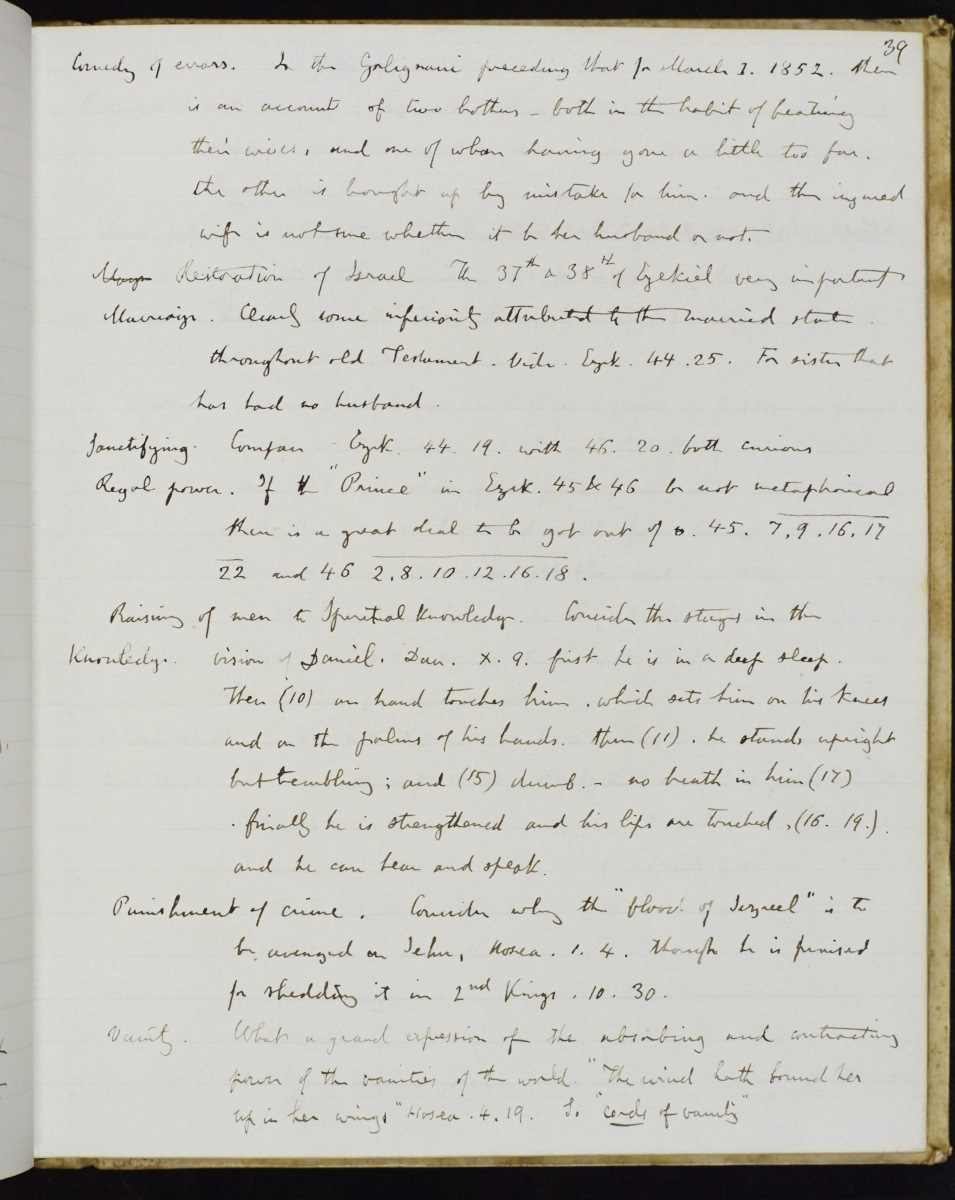 39
Comedy of errors. In the Galignani preceding that for March 1. 1852. there
is an account of two brothers - both in the habit of beating
their wives, and one of whom having gone a little too far.
the other is brought up by mistake for him. and the injured
wife is not sure whether it be her husband or not.
Restoration of Israel The 37th & 38th of Ezekiel very important
Marriage. Clearly some inferiority attributed to the married state
throughout old Testament. Vide. Ezek. 44.25. For sister that
has had no husband.
Sanctifying. Compare Ezek. 44. 19. with 46. 20. both curious
Regal power. If the "Prince" in Ezek. 45 & 46 be not metaphorical
there is a great deal to be got out of 45. 7, 9. 16. 17
22 and 46 2. 8. 10. 12. 16. 18.
Raising of men to Spiritual Knowledge. Consider the stages in the
Knowledge. vision of Daniel. Dan. X. 9. first he is in a deep sleep.
Then (10) an hand touches him. which sets him on his knees
and on the palms of his hands. then (11). he stands upright
but trembling; and (15) dumb. - no breath in him (17)
. finally he is strengthened and his lips are touched, (16. 19.).
and he can hear and speak.
Punishment of crime. Consider why the "blood of Jezreel" is to
be avenged on Jehu, Hosea. 1. 4. though he is praised
for shedding it in 2nd Kings. 10. 30.
Vanity. What a grand expression of the absorbing and contracting
power of the vanities of the world. "The wind hath bound her
up in her wings" Hosea. 4. 19. So "cords of vanity"